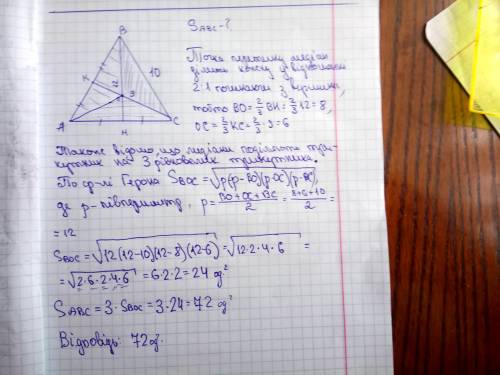 B
S_ABC - ?
10
K
2
O
A
H
C
Точка перетину медіан
ділить кожну у відношенні
2:1 починаючи з вершини,
тобто BO = 2/3 BH = 2/3 · 12 = 8,
OC = 2/3 KC = 2/3 · 9 = 6
Також відомо, що медіани поділяють три-
кутник на 3 рівновеликі трикутника.
По ф-лі Герона S_BOC = √p(p-BO)(p-OC)(p-BC),
де p - півпериметр, p = (BO+OC+BC)/2 = (8+6+10)/2 =
= 12
S_BOC = √12(12-10)(12-8)(12-6) = √12·2·4·6 =
= √2·6·2·4·6 = 6·2·2 = 24 од²
S_ABC = 3 · S_BOC = 3·24 = 72 од²
Відповідь: 72 од².